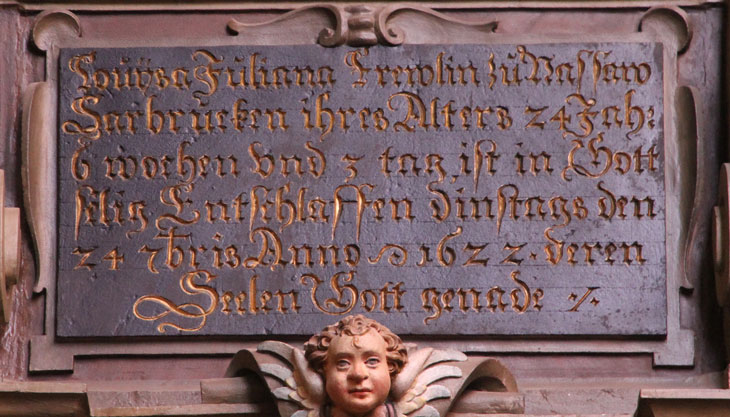 Loüÿsa Juliana Frewlin zü Nassaw
Sarbrücken ihres Alters 24 Jah:
6 wochen vnd 3 tag, ist in Gott
selig Entschlaffen dinstags den
24 7bris Anno 1622. deren
Seelen Gott genade ⁒